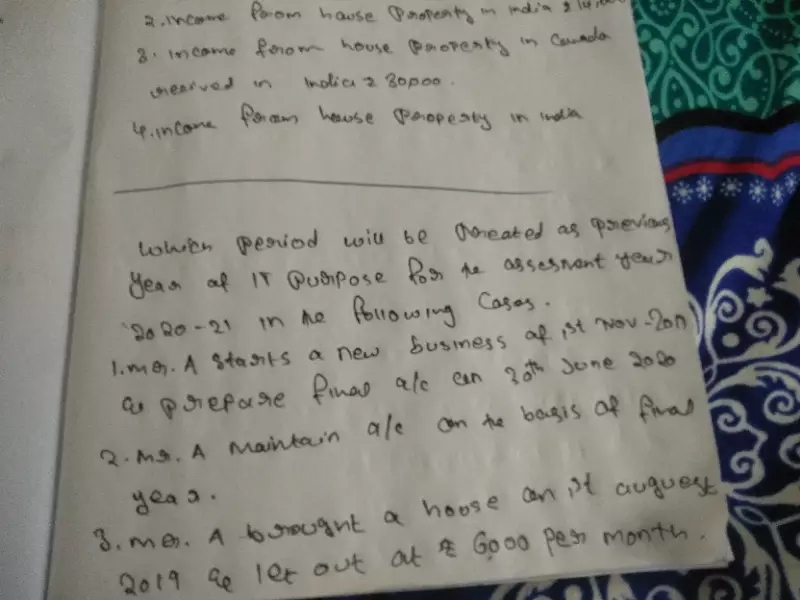 2. income from house Property in india ₹ 14,000
3. income from house Property in Canada
received in India ₹ 30,000.
4. income from house Property in india
Which period will be treated as previous
year of IT Purpose for the assesment year
2020-21 in the following Cases.
1. mr. A starts a new business of 1st Nov-201
& prepare final a/c on 30th June 2020
2. Mr. A Maintain a/c on the basis of final
year.
3. mr. A brought a house on 1st auguest
2019 & let out at ₹ 6000 per month.